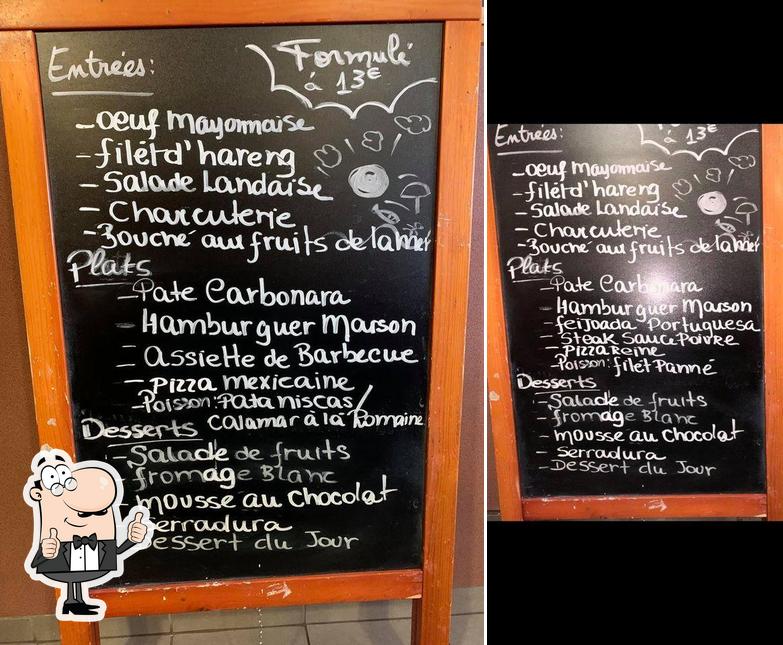 Entrées:
Formulé
á 13€
-oeuf Mayonnaise
-filétd'hareng
-Salade Landaise
-Charcuterie
-Bouché aux fruits de lamer
Plats
-Pate Carbonara
-Hamburguer Maison
-assiette de Barbecue
-Pizza mexicaine
-Poisson: Pataniscas/
Calamar à là Romaine
Desserts
-Salade de fruits
-fromage Blanc
-mousse au Chocolat
serradura
Dessert du Jour
Entrées:
à 13€
-oeuf Mayonnaise
-filétd'hareng
-Salade Landaise
-Charcuterie
-Bouché aux fruits de lamer
Plats
-Pate Carbonara
-Hamburguer Maison
-feijoada Portuguesa
-Steak Sauce Poivre
-Pizza Reine
-Poisson: filet Panné
Desserts
-Salade de fruits
-fromage Blanc
-mousse au Chocolat
-serradura
-Dessert du Jour